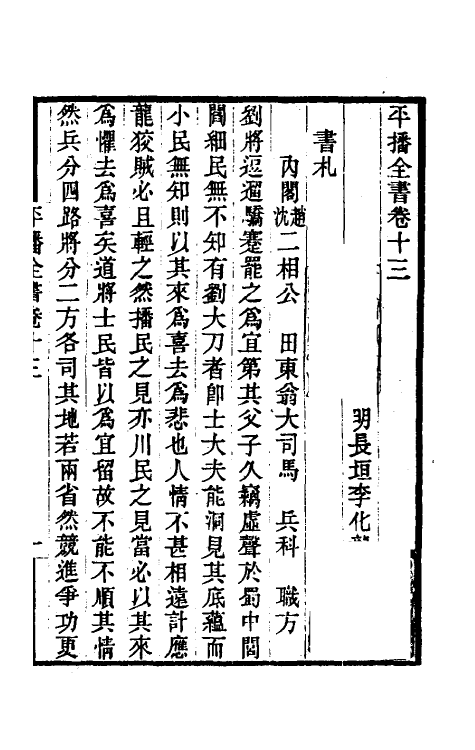 平播全書卷十三
明長垣李化龍
書札
內閣趙沈二相公　田東翁大司馬　兵科　職方
劉將逗遛驕蹇罷之為宜第其父子久竊虛聲於蜀中閭
閻細民無不知有劉大刀者卽士大夫能洞見其底蘊而
小民無知則以其來為喜去為悲也人情不甚相遠計應
龍狡賊必且輕之然播民之見亦川民之見當必以其來
為懼去為喜矣道將士民皆以為宜留故不能不順其情
然兵分四路將分二方各司其地若兩省然競進爭功更
平播全書卷十三　一